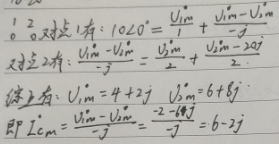 1 2
0 0 对点1有: 10∠0° = U̇1m/1 + (U̇1m-U̇2m)/-j
对点2有: (U̇1m-U̇2m)/-j = U̇2m/2 + (U̇2m-20j)/2
综上有: U̇1m = 4+2j U̇2m = 6+8j
即 İcm = (U̇1m-U̇2m)/-j = (-2-6j)/-j = 6-2j